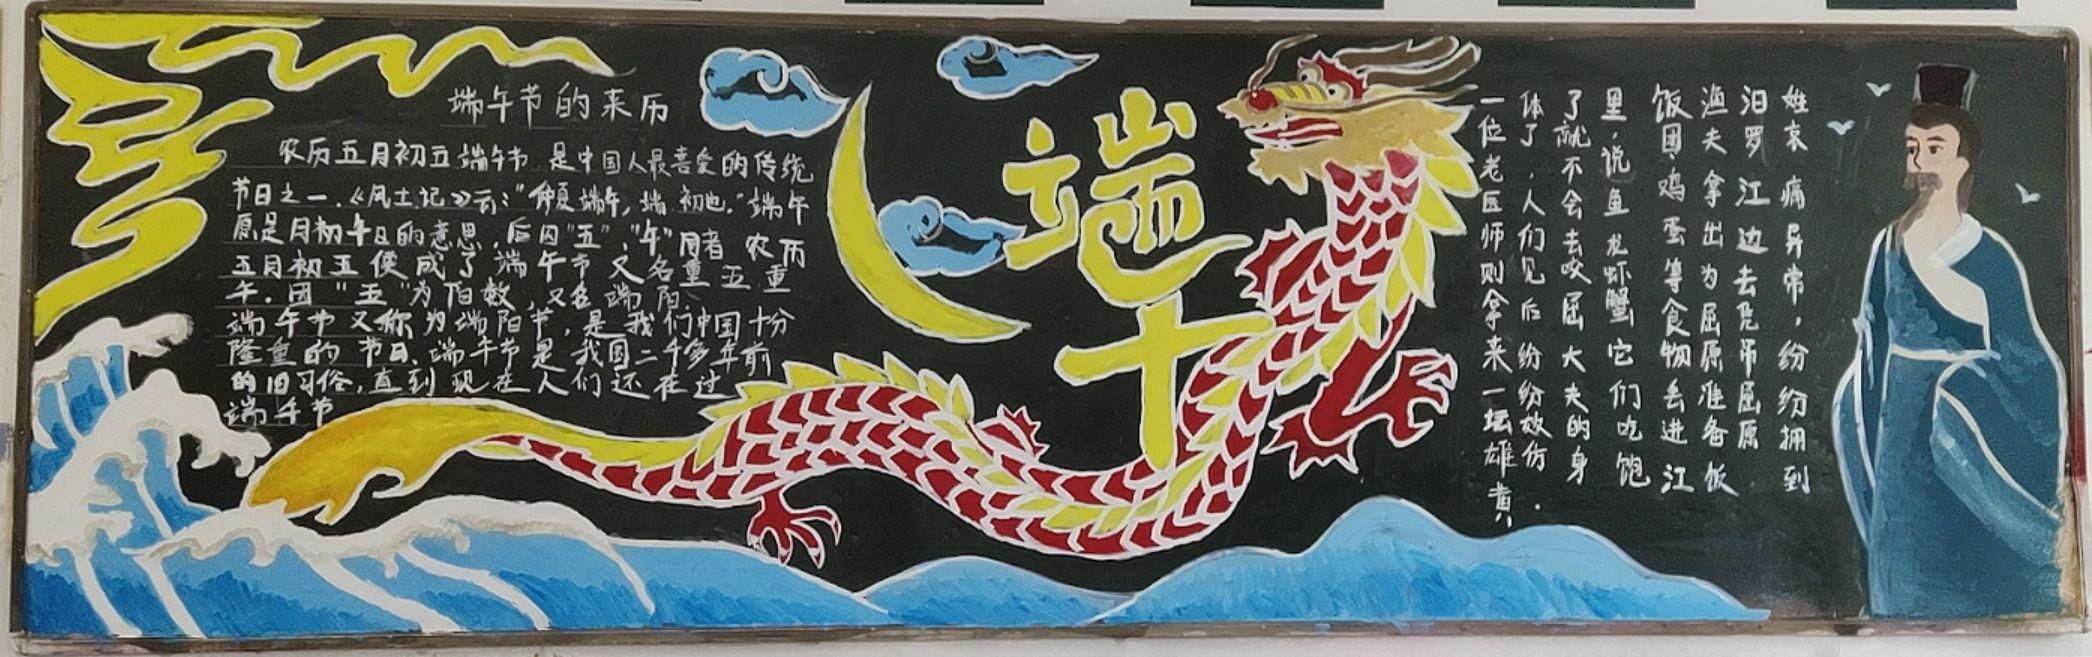 端午节的来历
农历五月初五端午节,是中国人最喜爱的传统
节日之一.《风土记》云:"仲夏端午,端,初也."端午
原是月初午日的意思,后因"五","午"同者 农历
五月初五便成了端午节 又名重五重
午.因"五"为阳数,又名端阳、
端午节又称为端阳节,是我们中国十分
隆重的节日.端午节是我国二千多年前
的旧习俗,直到现在人们还在过
端午节
端
十
姓哀痛异常,纷纷拥到
汨罗江边去凭吊屈原
渔夫拿出为屈原准备饭
饭团、鸡蛋等食物丢进江
里,说鱼龙虾蟹它们吃饱
了就不会去咬屈大夫的身
体了,人们见后纷纷效仿.
一位老医师则拿来一坛雄黄